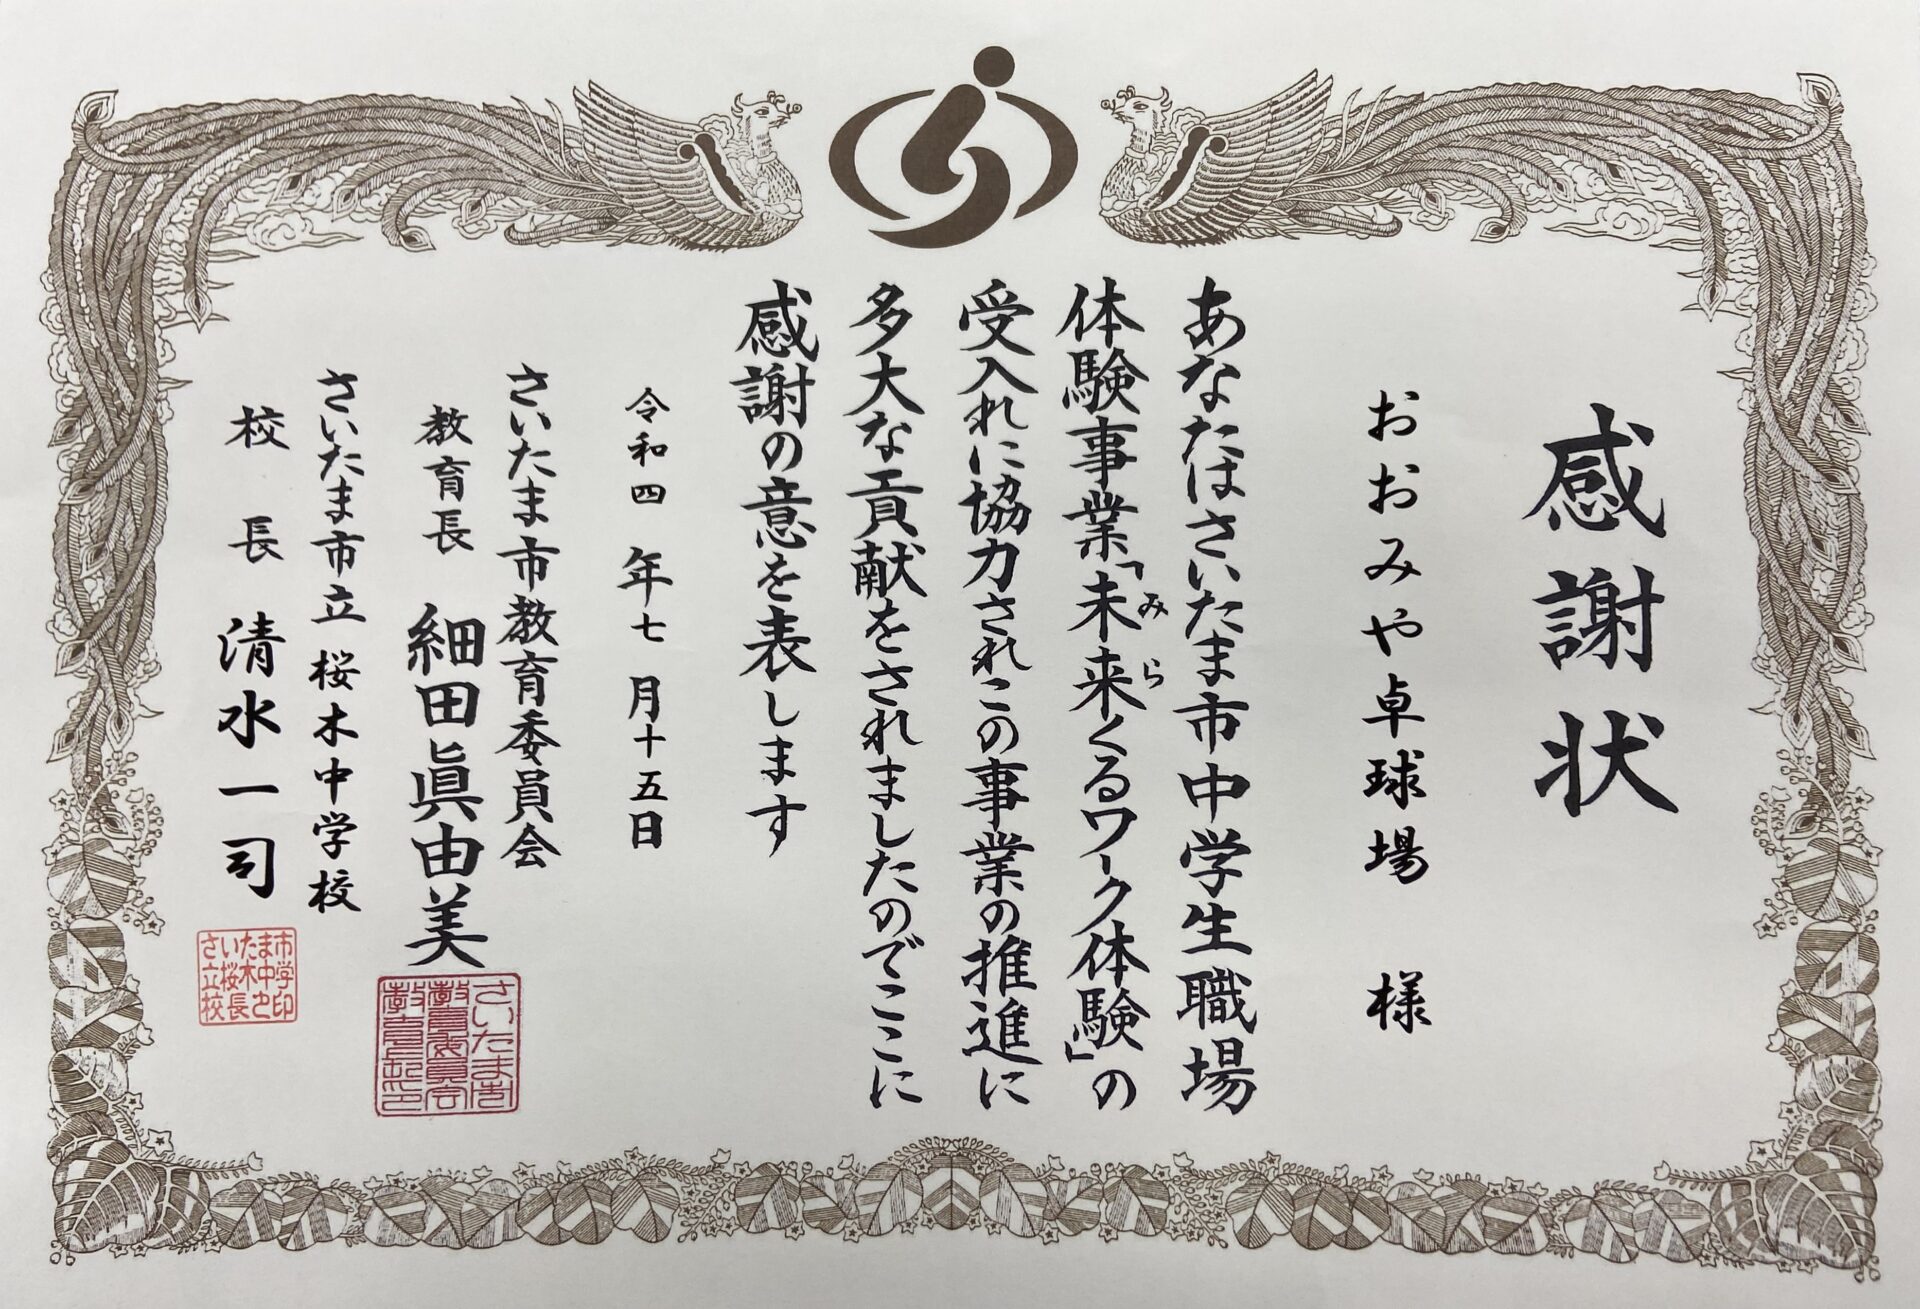 感謝状
おおみや卓球場 様
あなたはさいたま市中学生職場
体験事業「未来くるワーク体験」の
みら
受入れに協力されこの事業の推進に
多大な貢献をされましたのでここに
感謝の意を表します
令和四年七月十五日
さいたま市教育委員会
教育長 細田眞由美
さいたま市教育委員会教育長之印
さいたま市立桜木中学校
校長 清水一司
さいたま市立桜木中学校長之印